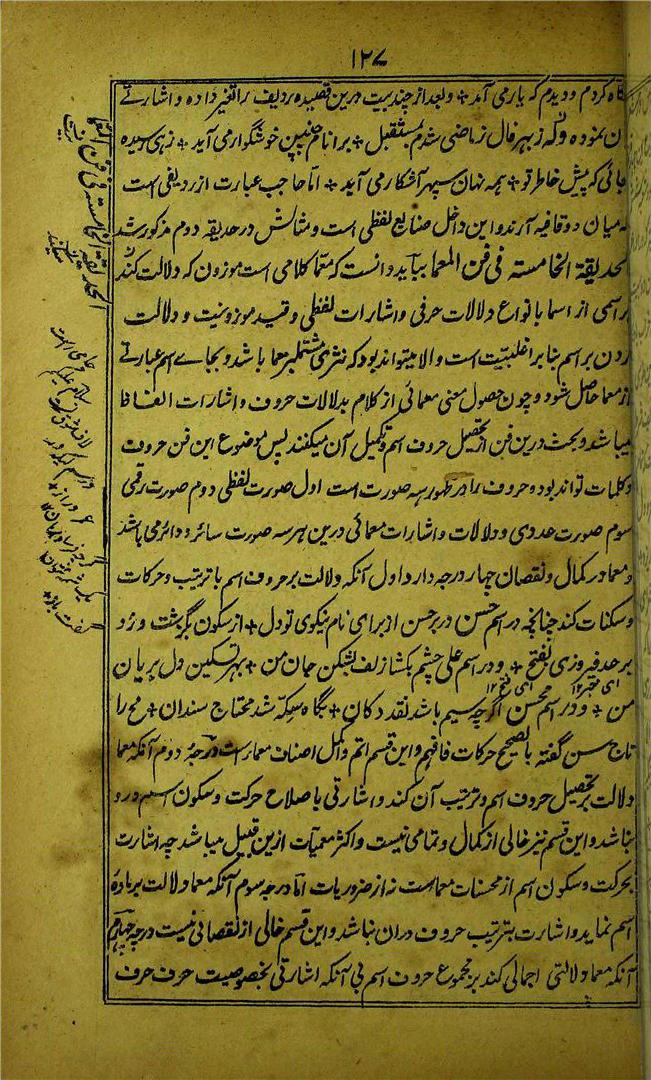 ۱۲۷
گاه کردم و دیدم که یار می آمد + و بعد از چند بیت درین قصیده ردیف را تغیر داده و اشارتے
ن نموده وگه ز بهر فال ز ماضی شدم بمستقبل + بر آنام چنین خوشگوار می آید + زهی رسیده
بجائی که پیش خاطر تو + همه نهان سپهر آشکار می آید + اما حاجب عبارت از ردیفی است
که میان دو قافیه آرند و این داخل صنایع لفظی است و مثالش در حدیقه دوم مذکور شد
الحدیقة الخامسة فی فن المعما بباید دانست که معما کلامی است موزون که دلالت کند
بر اسمی از اسما بانواع دلالات حرفی و اشارات لفظی و قید موزونیت و دلالت
کردن بر اسم بنا بر اغلبیت است و الا میتواند بود که نثری مشتمل بر معما باشد و بجاے اسم عبارتے
از معما حاصل شود و چون حصول معنی معمائی از کلام بدلالات حروف و اشارات الفاظ
میباشد و بحث درین فن از تحصیل حروف اسم و تکمیل آن میکنند پس موضوع این فن حروف
و کلمات تواند بود و حروف را در ظهور سه صورت است اول صورت لفظی دوم صورت رقمی
سوم صورت عددی و دلالات و اشارات معمائی درین هر سه صورت سائر و دائر می باشد
و معما در کمال و نقصان چهار درجه دارد اول آنکه دلالت بر حروف اسم با ترتیب و حرکات
و سکنات کند چنانچه در اسم حسن در بر حسن از برای نام نیکوی تو دل + از سکون بگذشت و زد
بر حد فیروزی بفتح + و در اسم علی چشم بکشا زلف بشکن جان من + بهر تسکین دل بریان
من + و در اسم محسن اگرچه سیم باشد نقد دکان + بگاه سکه شد محتاج سندان + مح را
تاج سن گفته بالصحیح حرکات فافهم و این قسم اتم و اکمل اصناف معما است درجهٔ دوم آنکه معما
دلالت بر تحصیل حروف اسم و ترتیب آن کند و اشارتی باصلاح حرکت و سکون اسم درو
نباشد و این قسم نیز خالی از کمال و تمامی نیست و اکثر معمیات ازین قبیل میباشد چه اشارت
بحرکت و سکون اسم از محسنات معماست نه از ضروریات اما درجه سوم آنکه معما دلالت بر مادهٔ
اسم نماید و اشارت بترتیب حروف دران نباشد و این قسم خالی از نقصانی نیست درجه چهارم
آنکه معما دلالتی اجمالی کند بر مجموع حروف اسم بی آنکه اشارتی بخصوصیت حرف حرف
الحدیقة الخامسة فی فن المعما